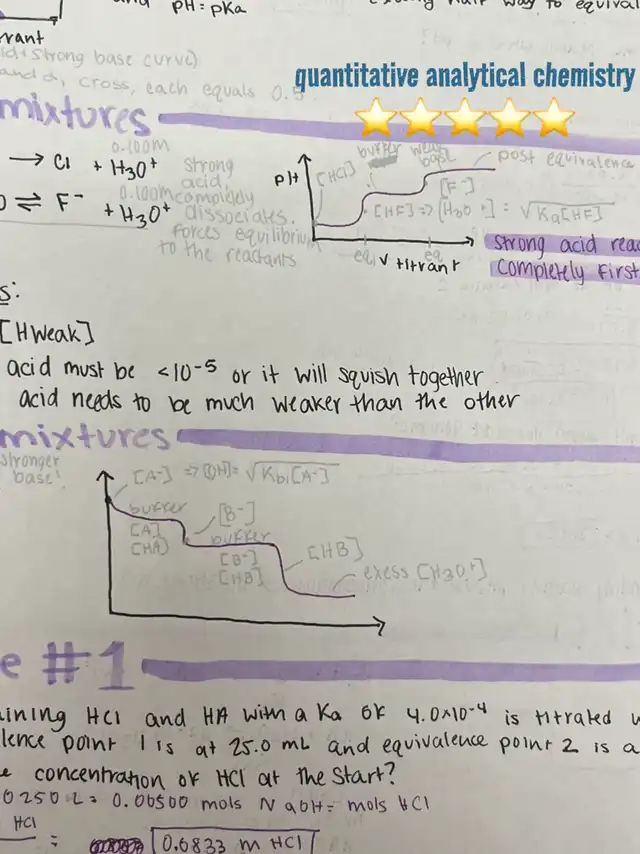 and pH = pKa
way to equival
rant
id + strong base curve)
and α, cross, each equals 0.5
quantitative analytical chemistry
mixtures
→ Cl + H3O+
0.100M
strong acid completely dissociates. forces equilibrium to the reactants
⇌ F- + H3O+
0.100M
pH
[HCl]
buffer
weak base
post equivalence
[F-]
[HF] => [H3O+] = √Ka[HF]
eq1
eq
V titrant
strong acid rea
completely first
s:
[HWeak]
acid must be <10-5 or it will squish together
acid needs to be much weaker than the other
mixtures
stronger base!
[A-] => [OH] = √Kb1[A-]
buffer
[A]
[HA]
[B-]
buffer
[B-]
[HB]
[HB]
exess [H3O+]
e #1
aining HCl and HA with a Ka of 4.0x10-4 is titrated w
lence point 1 is at 25.0 mL and equivalence point 2 is a
e concentration of HCl at the start?
0250 L = 0.00500 mols NaOH = mols HCl
HCl
= 0.0833 m HCl